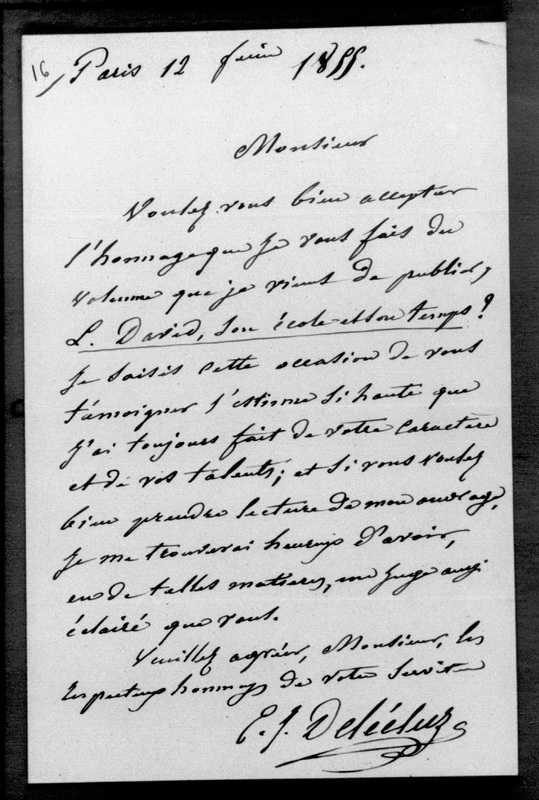 16/ Paris 12 juin 1855.
Monsieur
Voulez vous bien accepter
l'hommage que je vous fait du
volume que je viens de publier,
L. David, son école et son temps?
Je saisis cette occasion de vous
témoigner l'estime si haute que
j'ai toujours fait de votre caractère
et de vos talents; et si vous voulez
bien prendre lecture de mon ouvrage,
je me trouverai heureux d'avoir,
en de telles matières, un juge aussi
éclairé que vous.
Veuillez agréer, Monsieur, les
respectueux hommages de votre Servite
E. J. Delécluze